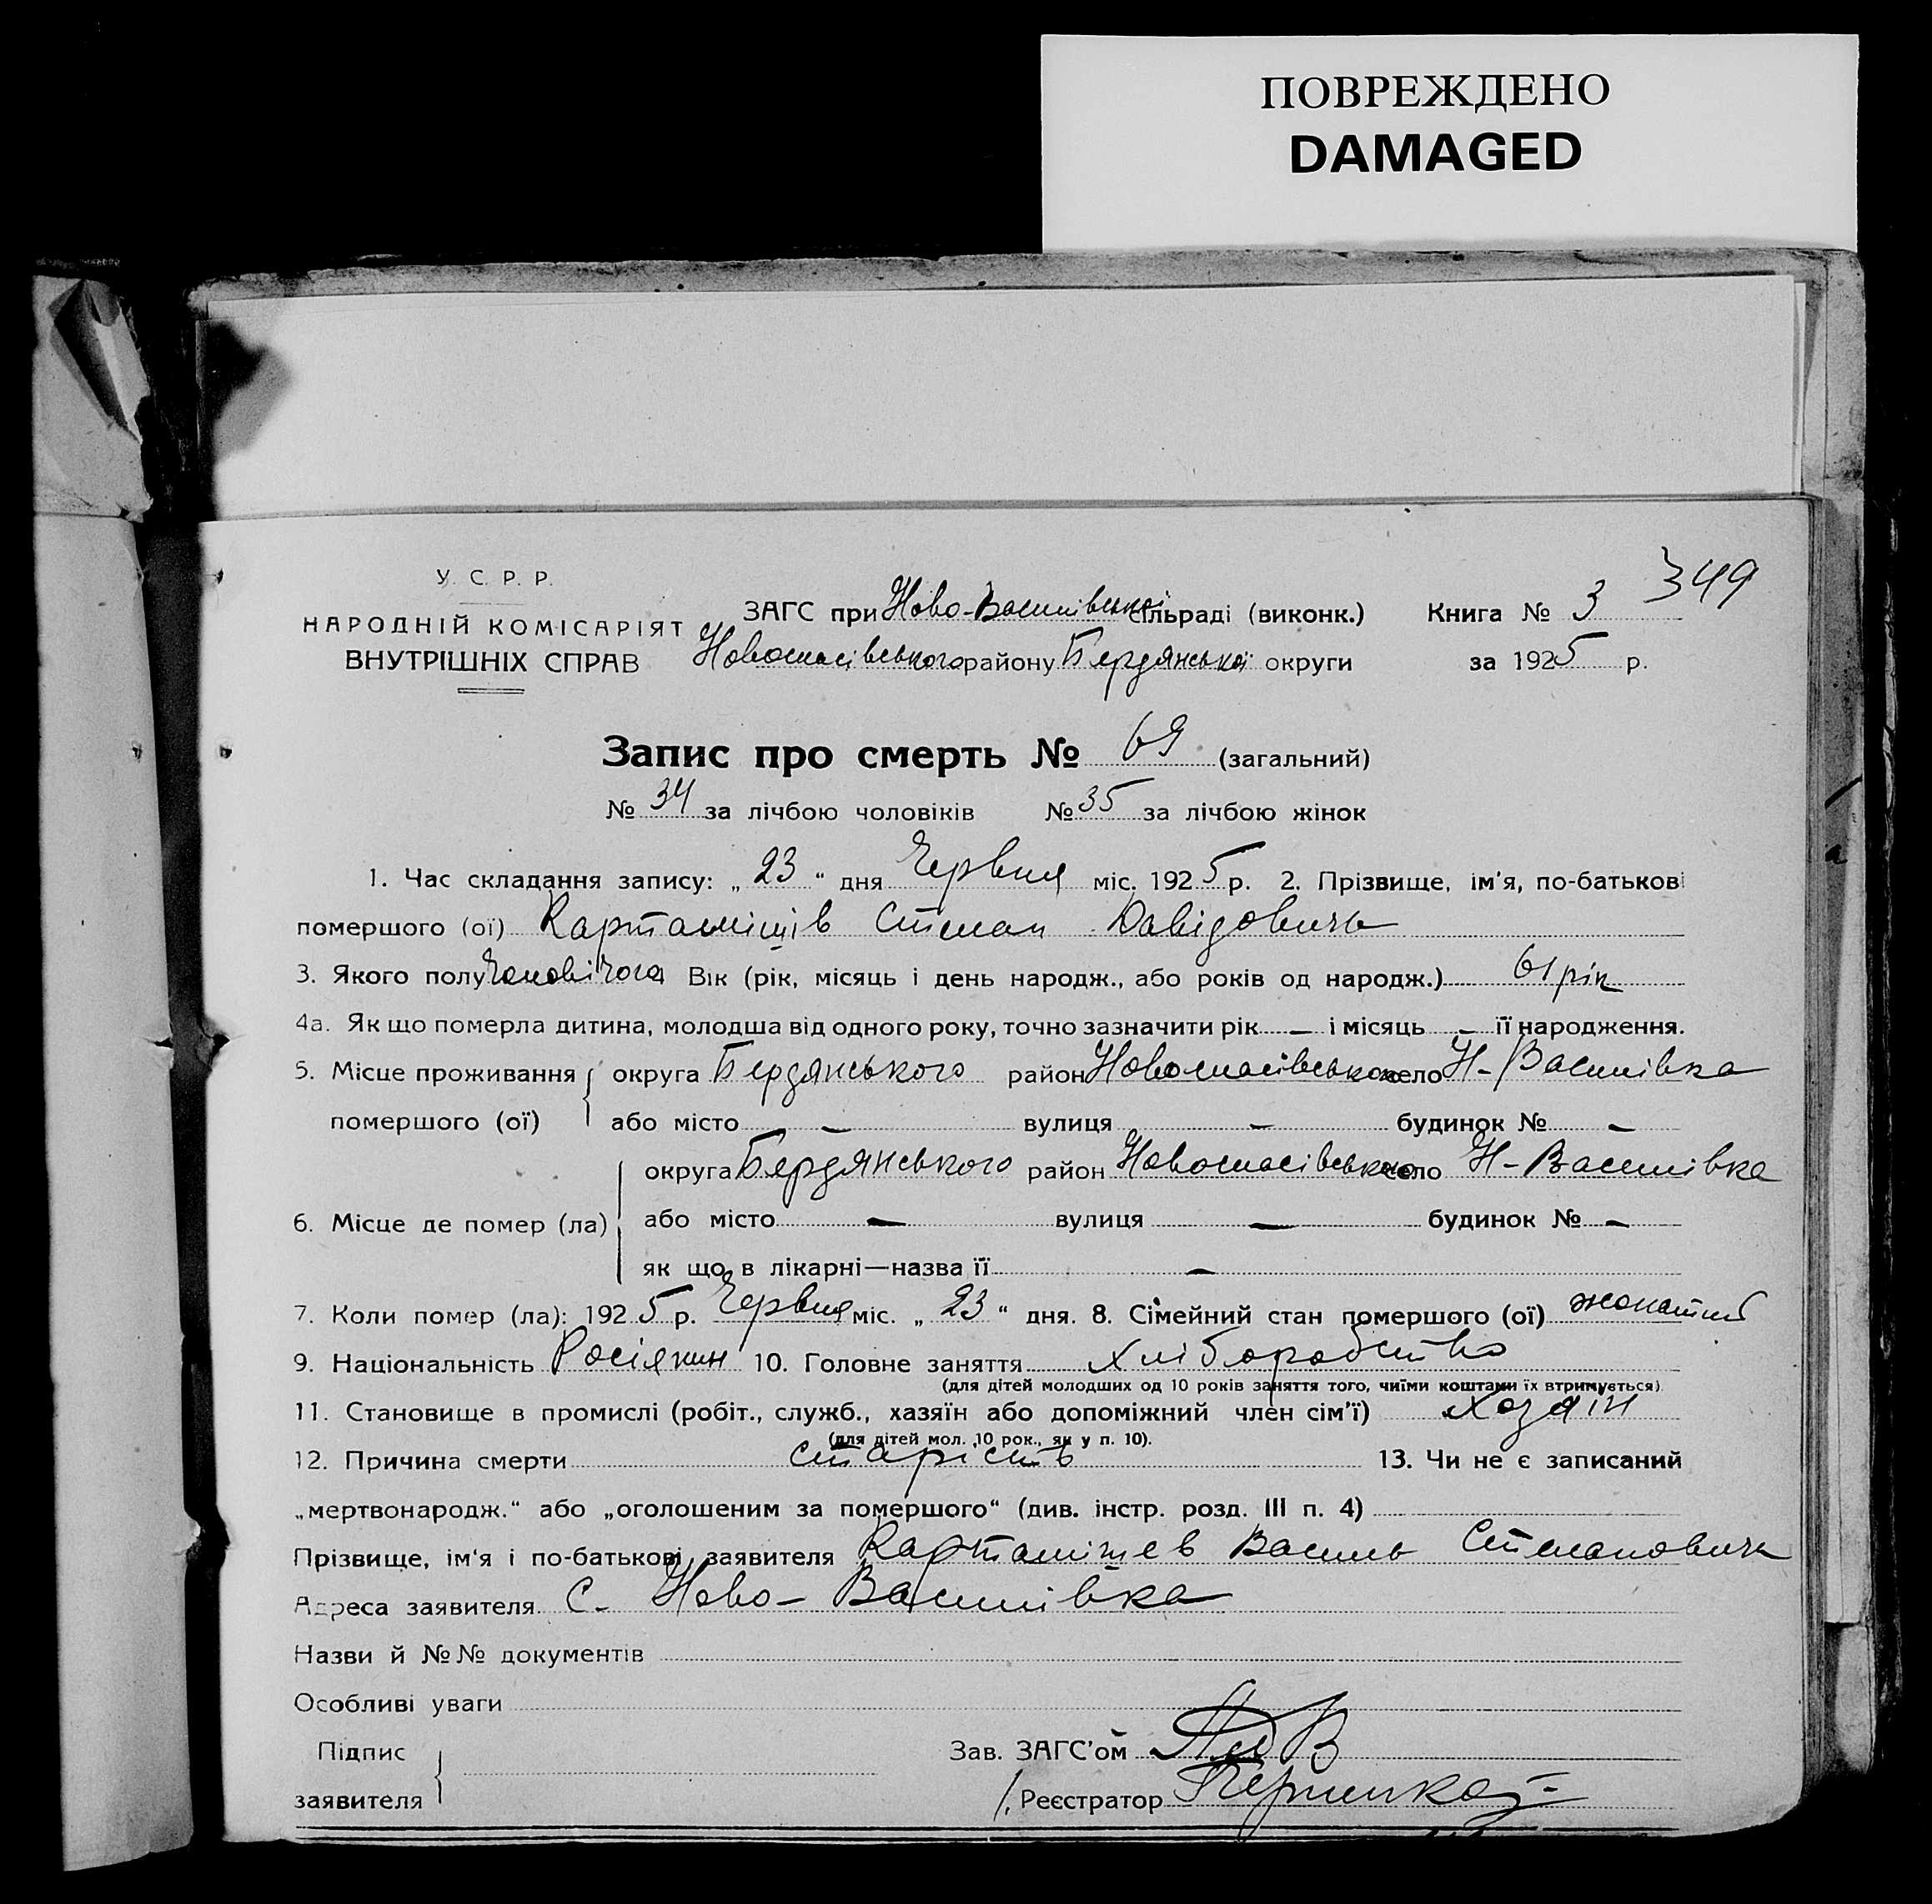 ПОВРЕЖДЕНО
DAMAGED
349
У. С. Р. Р.
НАРОДНІЙ КОМІСАРІЯТ
ВНУТРІШНІХ СПРАВ
ЗАГС при Ново-Василівської сільраді (виконк.) Книга № 3
Новоспасівського району Бердянської округи за 1925 р.
Запис про смерть № 69 (загальний)
№ 34 за лічбою чоловіків № 35 за лічбою жінок
1. Час складання запису: „ 23 “ дня Червня міс. 1925 р. 2. Прізвище, ім'я, по-батькові
помершого (ої) Картамішів Степан Давідовичь
3. Якого полу Чоловічого Вік (рік, місяць і день народж., або років од народж.) 61 рік
4а. Як що померла дитина, молодша від одного року, точно зазначити рік — і місяць — її народження.
5. Місце проживання помершого (ої) округа Бердянського район Новоспасівського село Н-Василівка
або місто — вулиця — будинок № —
6. Місце де помер (ла) округа Бердянського район Новоспасівського село Н-Василівка
або місто — вулиця — будинок № —
як що в лікарні—назва її —
7. Коли помер (ла): 1925 р. Червня міс. „ 23 “ дня. 8. Сімейний стан помершого (ої) жонатий
9. Національність Росіянин 10. Головне заняття Хліборобство
(для дітей молодших од 10 років заняття того, чиїми коштами їх втримується)
11. Становище в промислі (робіт., служб., хазяїн або допоміжний член сім'ї) Хозяїн
(для дітей мол. 10 рок., як у п. 10).
12. Причина смерти старість 13. Чи не є записаний
„мертвонародж.“ або „оголошеним за помершого“ (див. інстр. розд. III п. 4)
Прізвище, ім'я і по-батькові заявителя Картамішев Василь Степановичь
Адреса заявителя С. Ново-Василівка
Назви й №№ документів
Особливі уваги
Підпис заявителя
Зав. ЗАГС'ом
Реєстратор